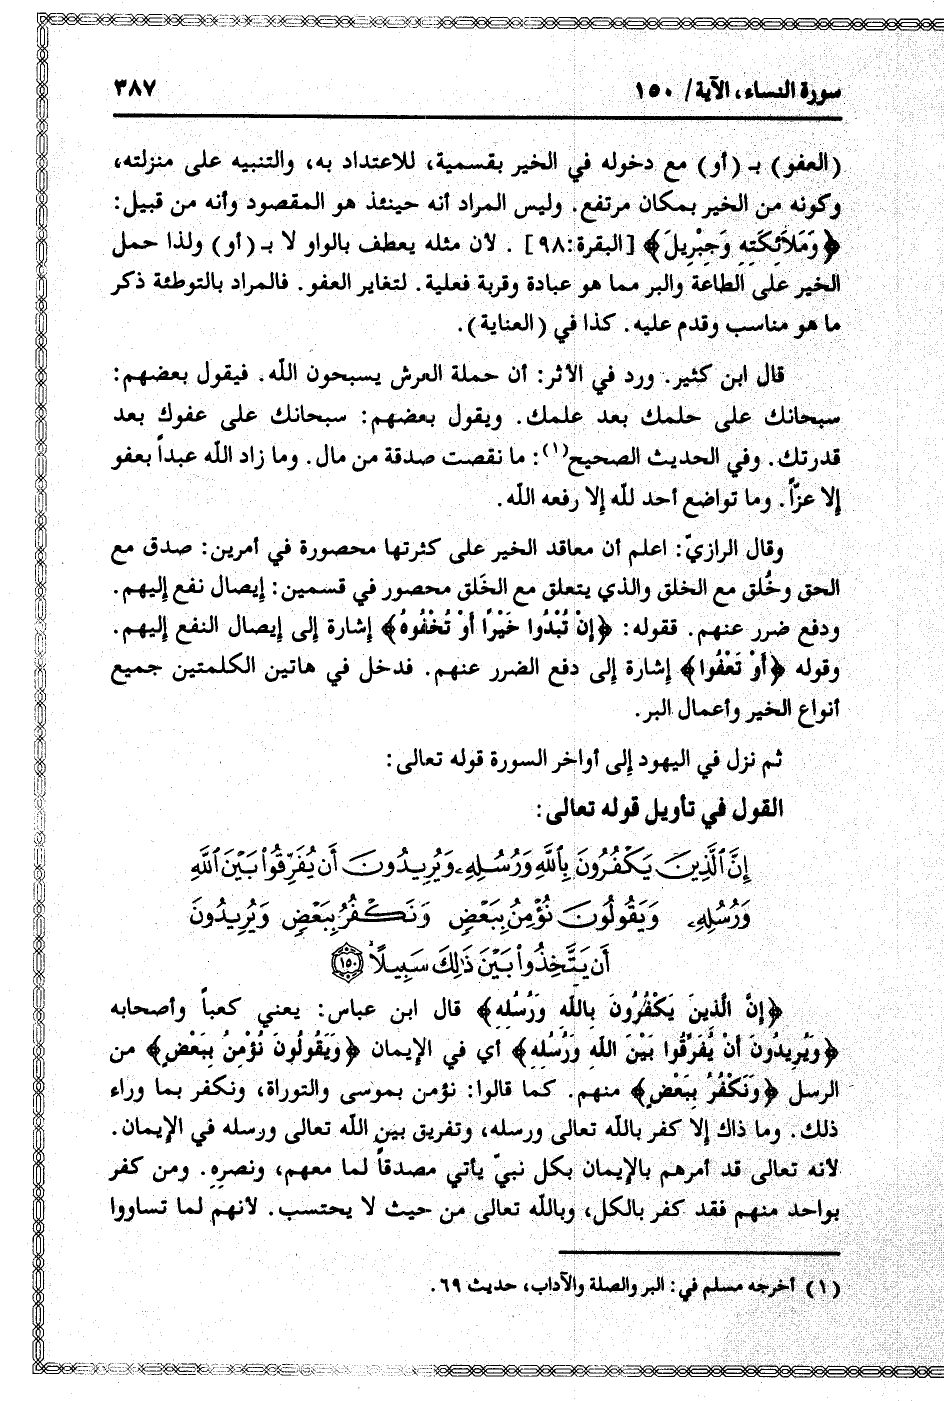 سورة النساء، الآية/ ١٥٠
٣٨٧
(العفو) بـ (أو) مع دخوله في الخير بقسمية، للاعتداد به، والتنبيه على منزلته،
وكونه من الخير بمكان مرتفع. وليس المراد أنه حينئذ هو المقصود وأنه من قبيل:
﴿وَمَلَائِكَتِهِ وَجِبْرِيلَ﴾ [البقرة:٩٨] . لأن مثله يعطف بالواو لا بـ (أو) ولذا حمل
الخير على الطاعة والبر مما هو عبادة وقربة فعلية. لتغاير العفو. فالمراد بالتوطئة ذكر
ما هو مناسب وقدم عليه. كذا في (العناية).
قال ابن كثير. ورد في الأثر: أن حملة العرش يسبحون اللّه. فيقول بعضهم:
سبحانك على حلمك بعد علمك. ويقول بعضهم: سبحانك على عفوك بعد
قدرتك. وفي الحديث الصحيح(١): ما نقصت صدقة من مال. وما زاد اللّه عبداً بعفو
إلا عزّاً. وما تواضع أحد للّه إلا رفعه اللّه.
وقال الرازيّ: اعلم أن معاقد الخير على كثرتها محصورة في أمرين: صدق مع
الحق وخُلق مع الخلق والذي يتعلق مع الخَلق محصور في قسمين: إيصال نفع إليهم.
ودفع ضرر عنهم. فقوله: ﴿إِنْ تُبْدُوا خَيْرًا أَوْ تُخْفُوهُ﴾ إشارة إلى إيصال النفع إليهم.
وقوله ﴿أَوْ تَعْفُوا﴾ إشارة إلى دفع الضرر عنهم. فدخل في هاتين الكلمتين جميع
أنواع الخير وأعمال البر.
ثم نزل في اليهود إلى أواخر السورة قوله تعالى:
القول في تأويل قوله تعالى:
إِنَّ ٱلَّذِينَ يَكْفُرُونَ بِٱللَّهِ وَرُسُلِهِۦ وَيُرِيدُونَ أَن يُفَرِّقُوا۟ بَيْنَ ٱللَّهِ
وَرُسُلِهِۦ وَيَقُولُونَ نُؤْمِنُ بِبَعْضٍ وَنَكْفُرُ بِبَعْضٍ وَيُرِيدُونَ
أَن يَتَّخِذُوا۟ بَيْنَ ذَٰلِكَ سَبِيلًا ١٥٠
﴿إِنَّ الَّذِينَ يَكْفُرُونَ بِاللَّهِ وَرُسُلِهِ﴾ قال ابن عباس: يعني كعباً وأصحابه
﴿وَيُرِيدُونَ أَنْ يُفَرِّقُوا بَيْنَ اللَّهِ وَرُسُلِهِ﴾ أي في الإيمان ﴿وَيَقُولُونَ نُؤْمِنُ بِبَعْضٍ﴾ من
الرسل ﴿وَنَكْفُرُ بِبَعْضٍ﴾ منهم. كما قالوا: نؤمن بموسى والتوراة، ونكفر بما وراء
ذلك. وما ذاك إلا كفر باللّه تعالى ورسله، وتفريق بين اللّه تعالى ورسله في الإيمان.
لأنه تعالى قد أمرهم بالإيمان بكل نبيّ يأتي مصدقاً لما معهم، ونصره. ومن كفر
بواحد منهم فقد كفر بالكل، وباللّه تعالى من حيث لا يحتسب. لأنهم لما تساووا
(١) أخرجه مسلم في: البر والصلة والآداب، حديث ٦٩.